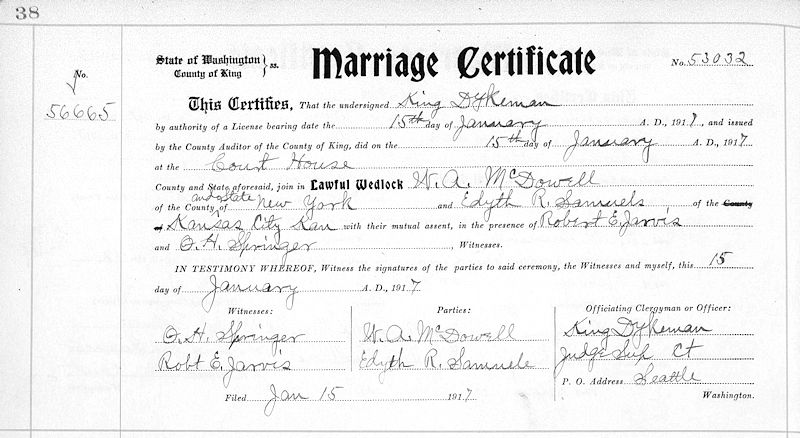 38
State of Washington
County of King } ss.
Marriage Certificate
No. 53032
No.
56665
This Certifies, That the undersigned King Dykeman
by authority of a License bearing date the 15th day of January A. D., 1917, and issued
by the County Auditor of the County of King, did on the 15th day of January A. D., 1917
at the Court House
County and State aforesaid, join in Lawful Wedlock W. A. McDowell
of the County and State of New York and Edyth R. Samuels of the County
of Kansas City Kan with their mutual assent, in the presence of Robert E. Jarvis
and O. H. Springer, Witnesses.
IN TESTIMONY WHEREOF, Witness the signatures of the parties to said ceremony, the Witnesses and myself, this 15
day of January A. D., 1917
Witnesses: Parties: Officiating Clergyman or Officer:
O. H. Springer W. A. McDowell King Dykeman
Robt E. Jarvis Edyth R. Samuels Judge Sup Ct
P. O. Address Seattle
Filed Jan 15 1917 Washington.